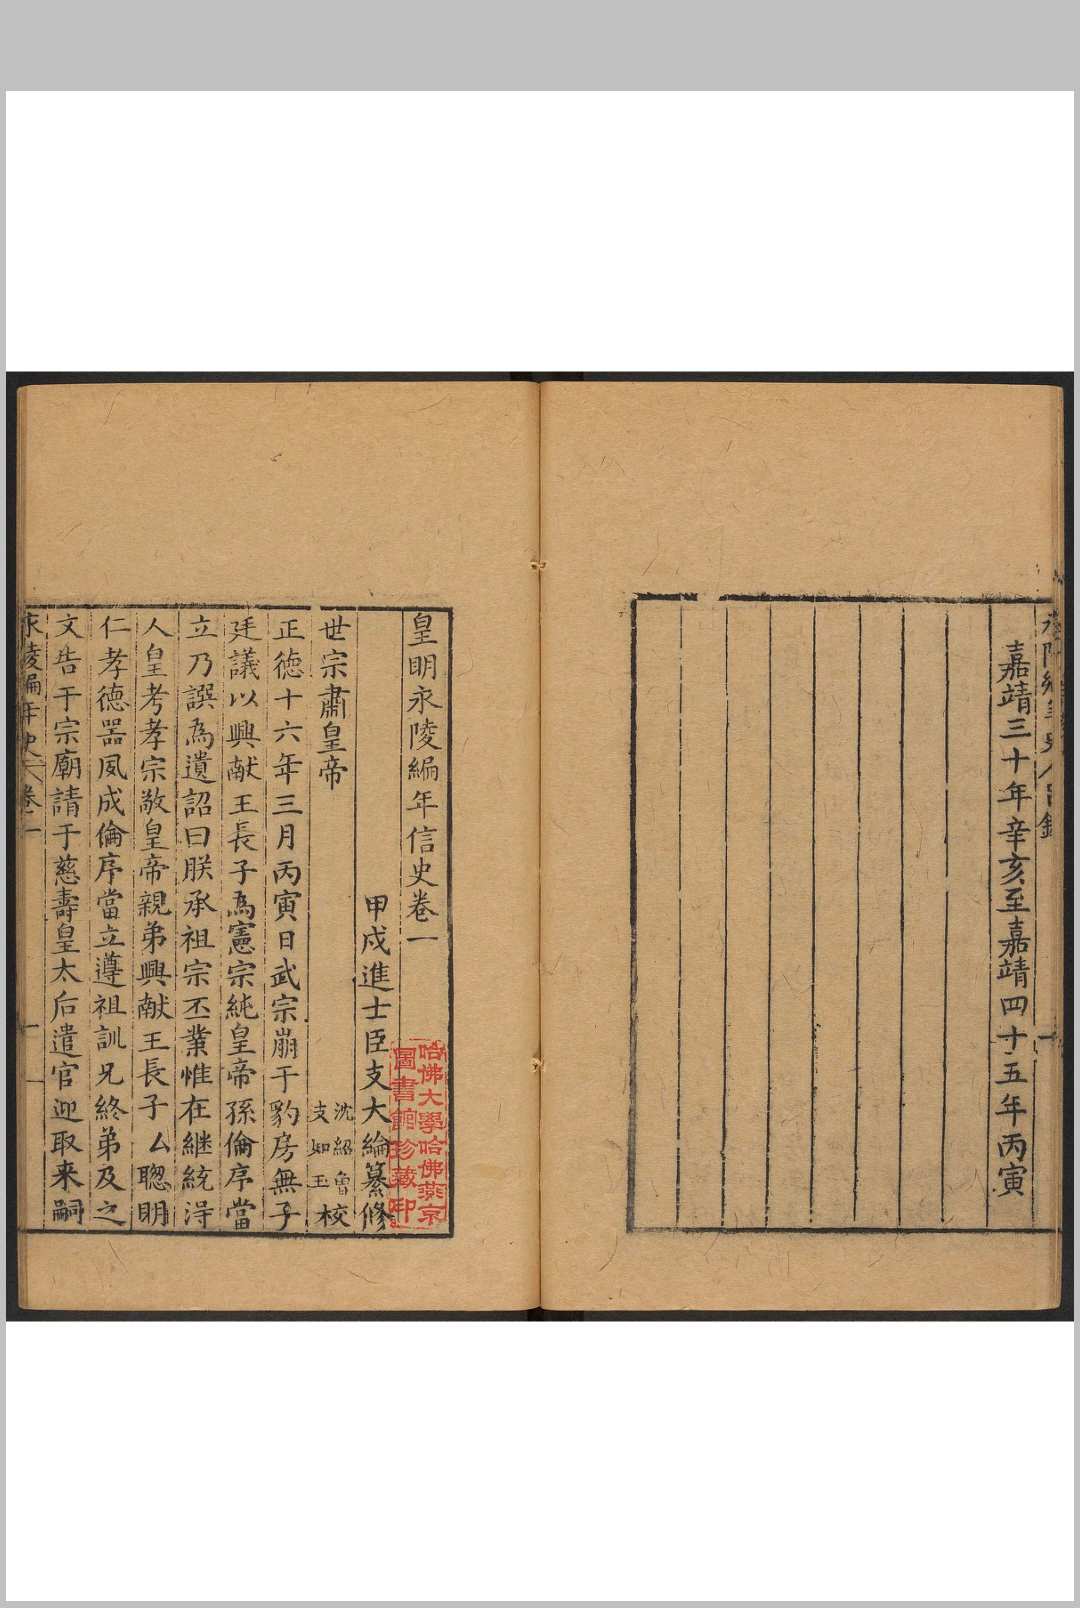 嘉靖三十年辛亥至嘉靖四十五年丙寅
皇明永陵編年信史卷一
甲戌進士臣支大綸纂修
世宗肅皇帝
沈紹曾
支如玉
校
正德十六年三月丙寅日武宗崩于豹房無子
廷議以興献王長子為憲宗純皇帝孫倫序當
立乃譔為遺詔曰朕承祖宗丕業惟在継統淂
人皇考孝宗敬皇帝親弟興献王長子厶聰明
仁孝德器夙成倫序當立遵祖訓兄終弟及之
文告于宗廟請于慈壽皇太后遣官迎取来嗣
永陵編年史
卷一
一
哈佛大學哈佛燕京
圖書館珍藏印